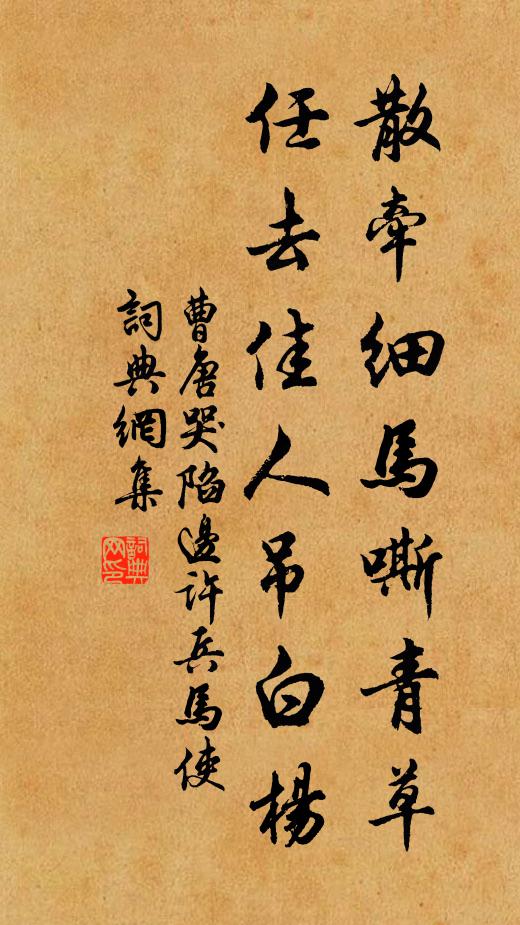 散牽細馬嘶青草
任去佳人吊白楊
曹唐哭陷邊許兵馬使
詞典網集
詞典
网印